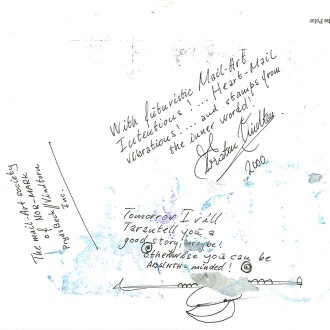 the Polar
With futuristic Mail-Art
Intentions!... Heart-Mail
vibrations!... and stamps from
the inner world!
2000.
The mail-Art society
of NOR-MARK
Inc.
Tomorrow I vill
Tarantell you a
good story,
otherwise you can be
ABSINTH-minded!